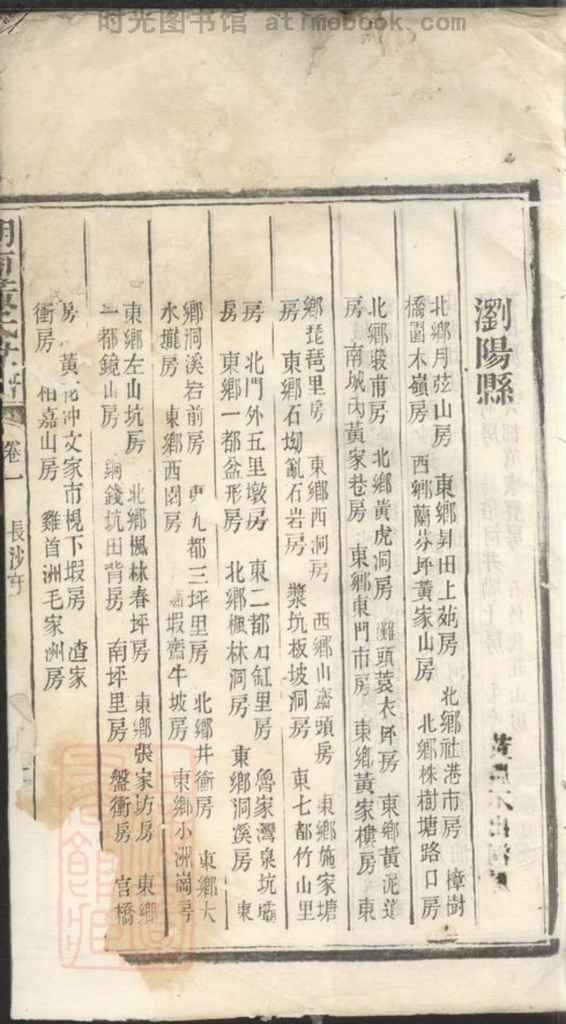 时光图书馆 atimebook.com
瀏陽縣
北鄉月弦山房 東鄉昇田上苑房 北鄉社港市房 樟樹
橋園木嶺房 西鄉蘭芬坪黃家山房 北鄉株樹塘路口房
北鄉緞甫房 北鄉黃虎洞房 灘頭蓑衣坪房 東鄉黃泥
房 南城內黃家巷房 東鄉東門市房 東鄉黃家樓房 東
鄉琵琶里房 東鄉西洞房 西鄉山齋頭房 東鄉施家塘
房 東鄉石坳亂石岩房 漿坑板坡洞房 東七都竹山里
房 北門外五里墩房 東二都石缸里房 魯家灣泉坑
房 東鄉一都盆形房 北鄉楓林洞房 東鄉洞溪房 東
鄉洞溪岩前房 東九都三坪里房 北鄉井衝房 東鄉大
水瓏房 東鄉西園房 蝦齋牛坡房 東鄉小洲崗房
東鄉左山坑房 北鄉楓林春坪房 東鄉張家坊房 東鄉
一都鏡山房 銅錢坑田背房 南坪里房 盤衝房 官橋
房 黃花沖文家市梘下塅房 渣家
衝房 柏嘉山房 雞首洲毛家洲房
卷一 長沙